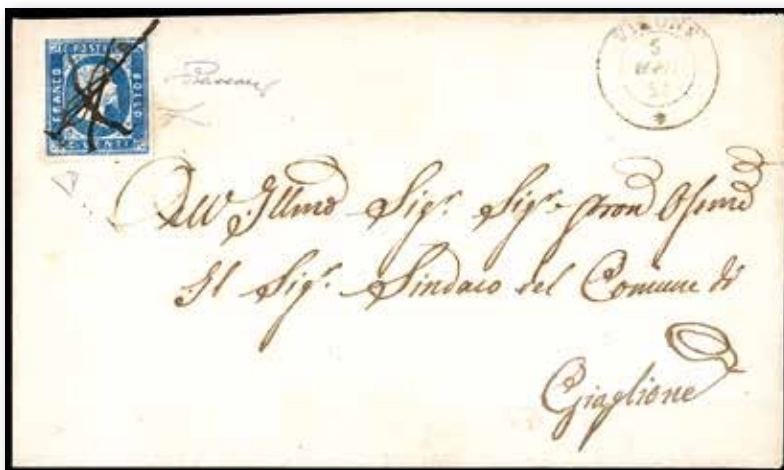 C. POSTE
FRANCO
BOLLO
CENTI
5
All' Illmo Sigr. Sigr. Pron Osimo
Il Sigr. Sindaco del Comune di
Giaglione